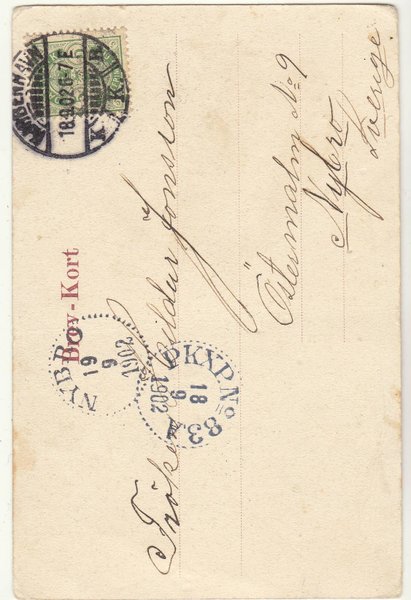 KJØBENHAVN
18.9.02 6-7 E
K.K.
Brev-Kort
Fröken Hildur Jonsson
Östermalm No 9
Nybro
Sverige.
NYBRO
19
9
1902
PKXP. No 83.
18
9
1902